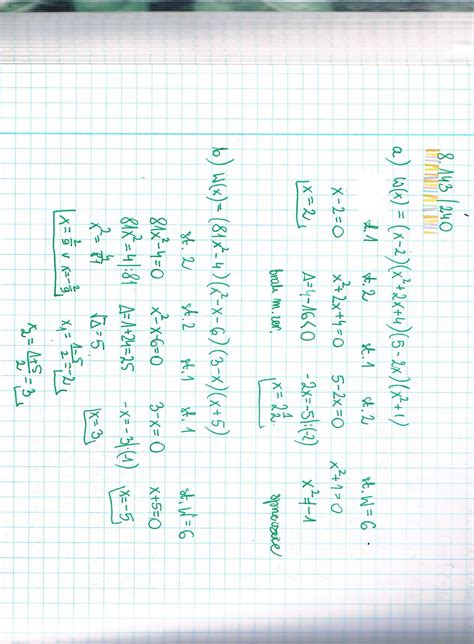 8.143/240
a) W(x) = (x-2)(x²+2x+4)(5-2x)(x²+1)
st.1 st.2 st.1 st.2 st.W=6
x-2=0 x²+2x+4=0 5-2x=0 x²+1=0
x=2 Δ=4-16<0 -2x=-5|:(-2) x²≠-1
brak m.zer. x=2½ sprzeczność
b) W(x) = (81x²-4)(x²-x-6)(3-x)(x+5)
st.2 st.2 st.1 st.1 st.W=6
81x²-4=0 x²-x-6=0 3-x=0 x+5=0
81x²=4|:81 Δ=1+24=25 -x=-3|(-1) x=-5
x²=4/81 √Δ=5 x=3
x=2/9 v x=-2/9 x₁=1-5/2=-2
x₂=1+5/2=3